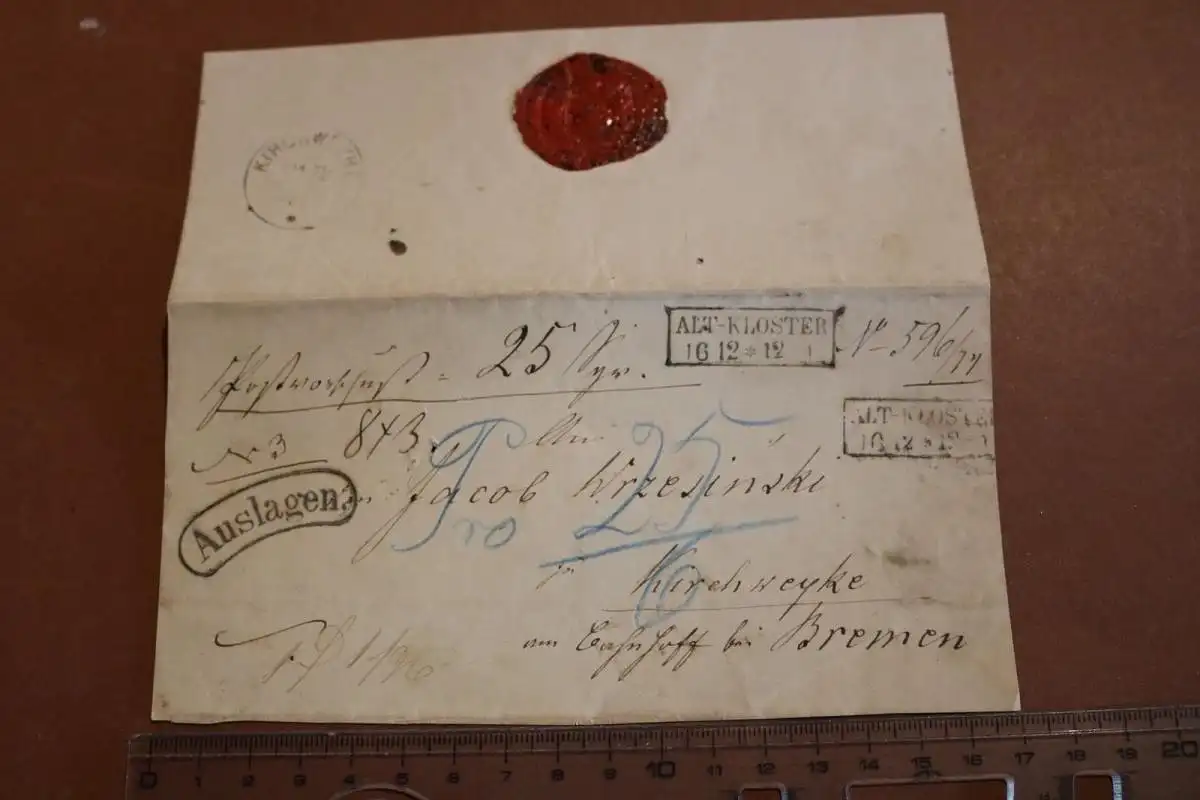 KIRCHWEYHE
ALT-KLOSTER
16 12 * 12 1
Postvorschuß = 25 Sgr.
No 596/74
No 3
843.
An
ALT-KLOSTER
16 12 * 12 1
Jacob Wrzesinski
Auslagen.
Pro 25
6
in Kirchweyke
am Bahnhoff bei Bremen
0 1 2 3 4 5 6 7 8 9 10 11 12 13 14 15 16 17 18 19 20